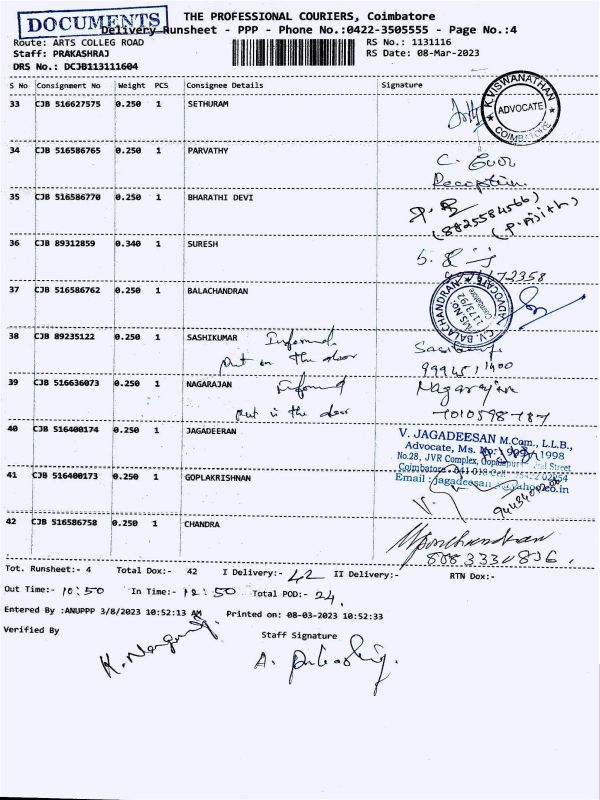 DOCUMENTS
THE PROFESSIONAL COURIERS, Coimbatore
Delivery Runsheet - PPP - Phone No.:0422-3505555 - Page No.:4
Route: ARTS COLLEG ROAD
RS No.: 1131116
Staff: PRAKASHRAJ
RS Date: 08-Mar-2023
DRS No.: DCJB113111604
S No Consignment No Weight PCS Consignee Details Signature
33 CJB 516627575 0.250 1 SETHURAM
K.VISWANATHAN
ADVOCATE
COIMBATORE
34 CJB 516586765 0.250 1 PARVATHY
Reception
35 CJB 516586770 0.250 1 BHARATHI DEVI
(8825584566)
(P. Ajith)
36 CJB 89312859 0.340 1 SURESH
37 CJB 516586762 0.250 1 BALACHANDRAN
C.V. BALACHANDRAN
ADVOCATE
MS NO:
1173/92
Coimbatore
38 CJB 89235122 0.250 1 SASHIKUMAR Informed
put in the door
39 CJB 516636073 0.250 1 NAGARAJAN Informed Nagarajan
put in the door 7010598787
40 CJB 516400174 0.250 1 JAGADEERAN
V. JAGADEESAN M.Com., L.L.B.,
Advocate, Ms. No: 1998
No.28, JVR Complex, 2nd Street
Coimbatore - 641 018
Email : jagadeesan yahoo.co.in
41 CJB 516400173 0.250 1 GOPLAKRISHNAN
42 CJB 516586758 0.250 1 CHANDRA
Tot. Runsheet:- 4 Total Dox:- 42 I Delivery:- 42 II Delivery:- RTN Dox:-
Out Time:- 10:50 In Time:- 12:50 Total POD:- 24
Entered By :ANUPPP 3/8/2023 10:52:13 AM Printed on: 08-03-2023 10:52:33
Verified By
Staff Signature